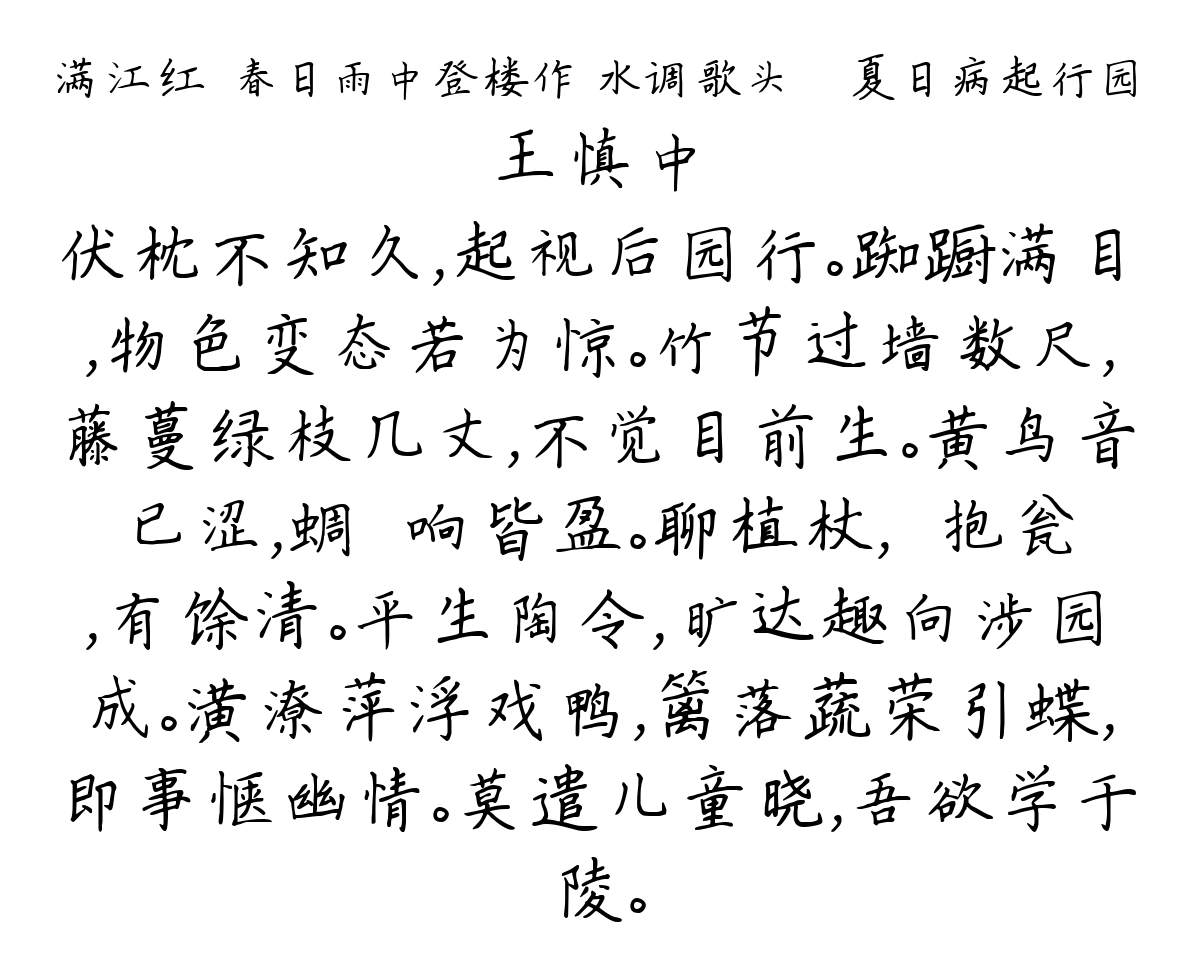 满江红 春日雨中登楼作 水调歌头 夏日病起行园
王慎中
伏枕不知久,起视后园行。踟蹰满目
,物色变态若为惊。竹节过墙数尺,
藤蔓绿枝几丈,不觉目前生。黄鸟音
已涩,蜩 响皆盈。聊植杖, 抱瓮
,有馀清。平生陶令,旷达趣向涉园
成。潢潦萍浮戏鸭,篱落蔬荣引蝶,
即事惬幽情。莫遣儿童晓,吾欲学于
陵。